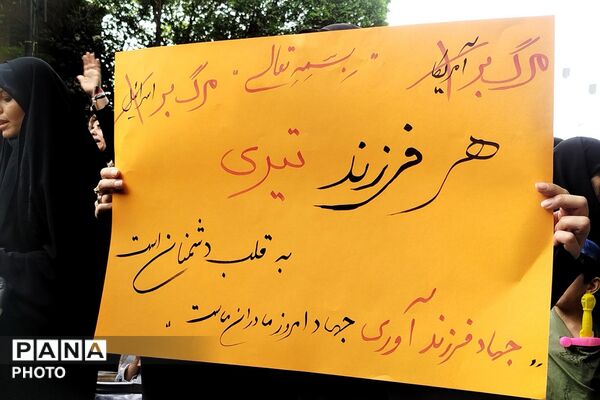 مرگ بر آمریکا
بسمه تعالی
مرگ بر اسرائیل
هر فرزند تیری
به قلب دشمنان است
"جهاد فرزند آوری جهاد امروز مادران ماست"
PANA
PHOTO